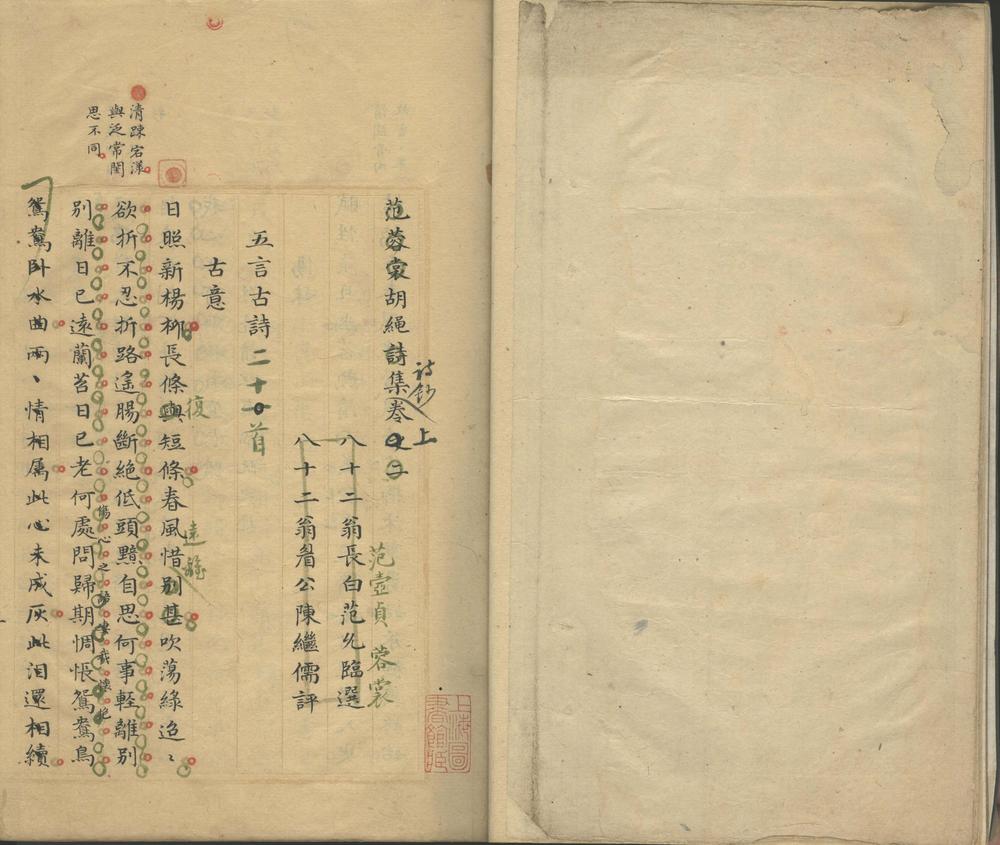 范蓉裳胡繩詩集卷之二
詩鈔
上
范壺貞 蓉裳
八十二翁長白范允臨選
八十二翁眉公陳繼儒評
五言古詩二十首
古意
日照新楊柳長條與短條春風惜別甚吹蕩綠迢〻
復
遠
欲折不忍折路遙腸斷絕低頭黯自思何事輕離別
別離日已遠蘭苕日已老何處問歸期惆悵鴛鴦鳥
傷心之
鴛鴦卧水曲兩〻情相属此心未成灰此泪還相續
清疎宕漾
與泛常閨
思不同
上海圖
書館藏